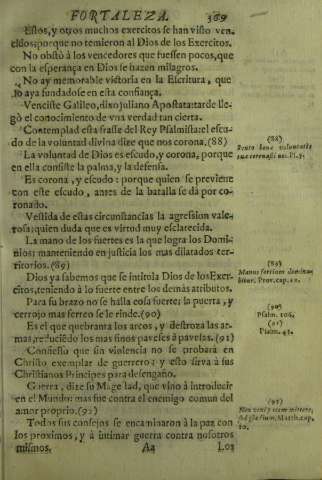 FORTALEZA. 369
Estos, y otros muchos exercitos se han visto ven-
cidos; porque no temieron al Dios de los Exercitos.
No obstò à los vencedores que fuessen pocos, que
con la esperança en Dios se hazen milagros.
No ay memorable victoria en la Escritura, que
no aya fundadose en esta confiança.
Venciste Galileo, dixo juliano Apostata: tarde lle-
gò el conocimiento de vna verdad tan cierta.
Contemplad esta frasse del Rey Psalmista: el escu-
do de la voluntad divina dize que nos corona. (88)
La voluntad de Dios es escudo, y corona, porque
en ella consiste la palma, y la defensa.
Es corona, y escudo: porque quien se previene
con este escudo, antes de la batalla se dà por co-
ronado.
Vestida de estas circunstancias la agression vale-
rosa; quien duda que es virtud muy esclarecida.
La mano de los fuertes es la que logra los Domi-
nios: manteniendo en justicia los mas dilatados ter-
ritorios. (89)
Dios ya sabemos que se intitula Dios de los Exer-
citos, teniendo à lo fuerte entre los demàs atributos.
Para su brazo no se halla cosa fuerte: la puerta, y
cerrojo mas ferreo se le rinde. (90)
Es el que quebranta los arcos, y destroza las ar-
mas, reduciendo los mas finos paveses à pavesas. (91)
Confiesso que sin violencia no se probarà en
Christo exemplar de guerrero: y esto sirva à sus
Christianos Principes para desengaño.
Guerra, dize su Magestad, que vino à introducir
en el Mundo: mas fue contra el enemigo comun del
amor proprio. (92)
Todos sus consejos se encaminaron à la paz con
los proximos, y à intimar guerra contra nosotros
mismos. Aa Los
(88)
Scuto bonæ voluntatis
tuæ coronasti nos. Ps. 5.
(89)
Manus fortium domina-
bitur. Prov. cap. 12.
(90)
Psalm. 106.
(91)
Psalm. 45.
(92)
Non veni pacem mittere,
sed gladium. Matth. cap.
10.